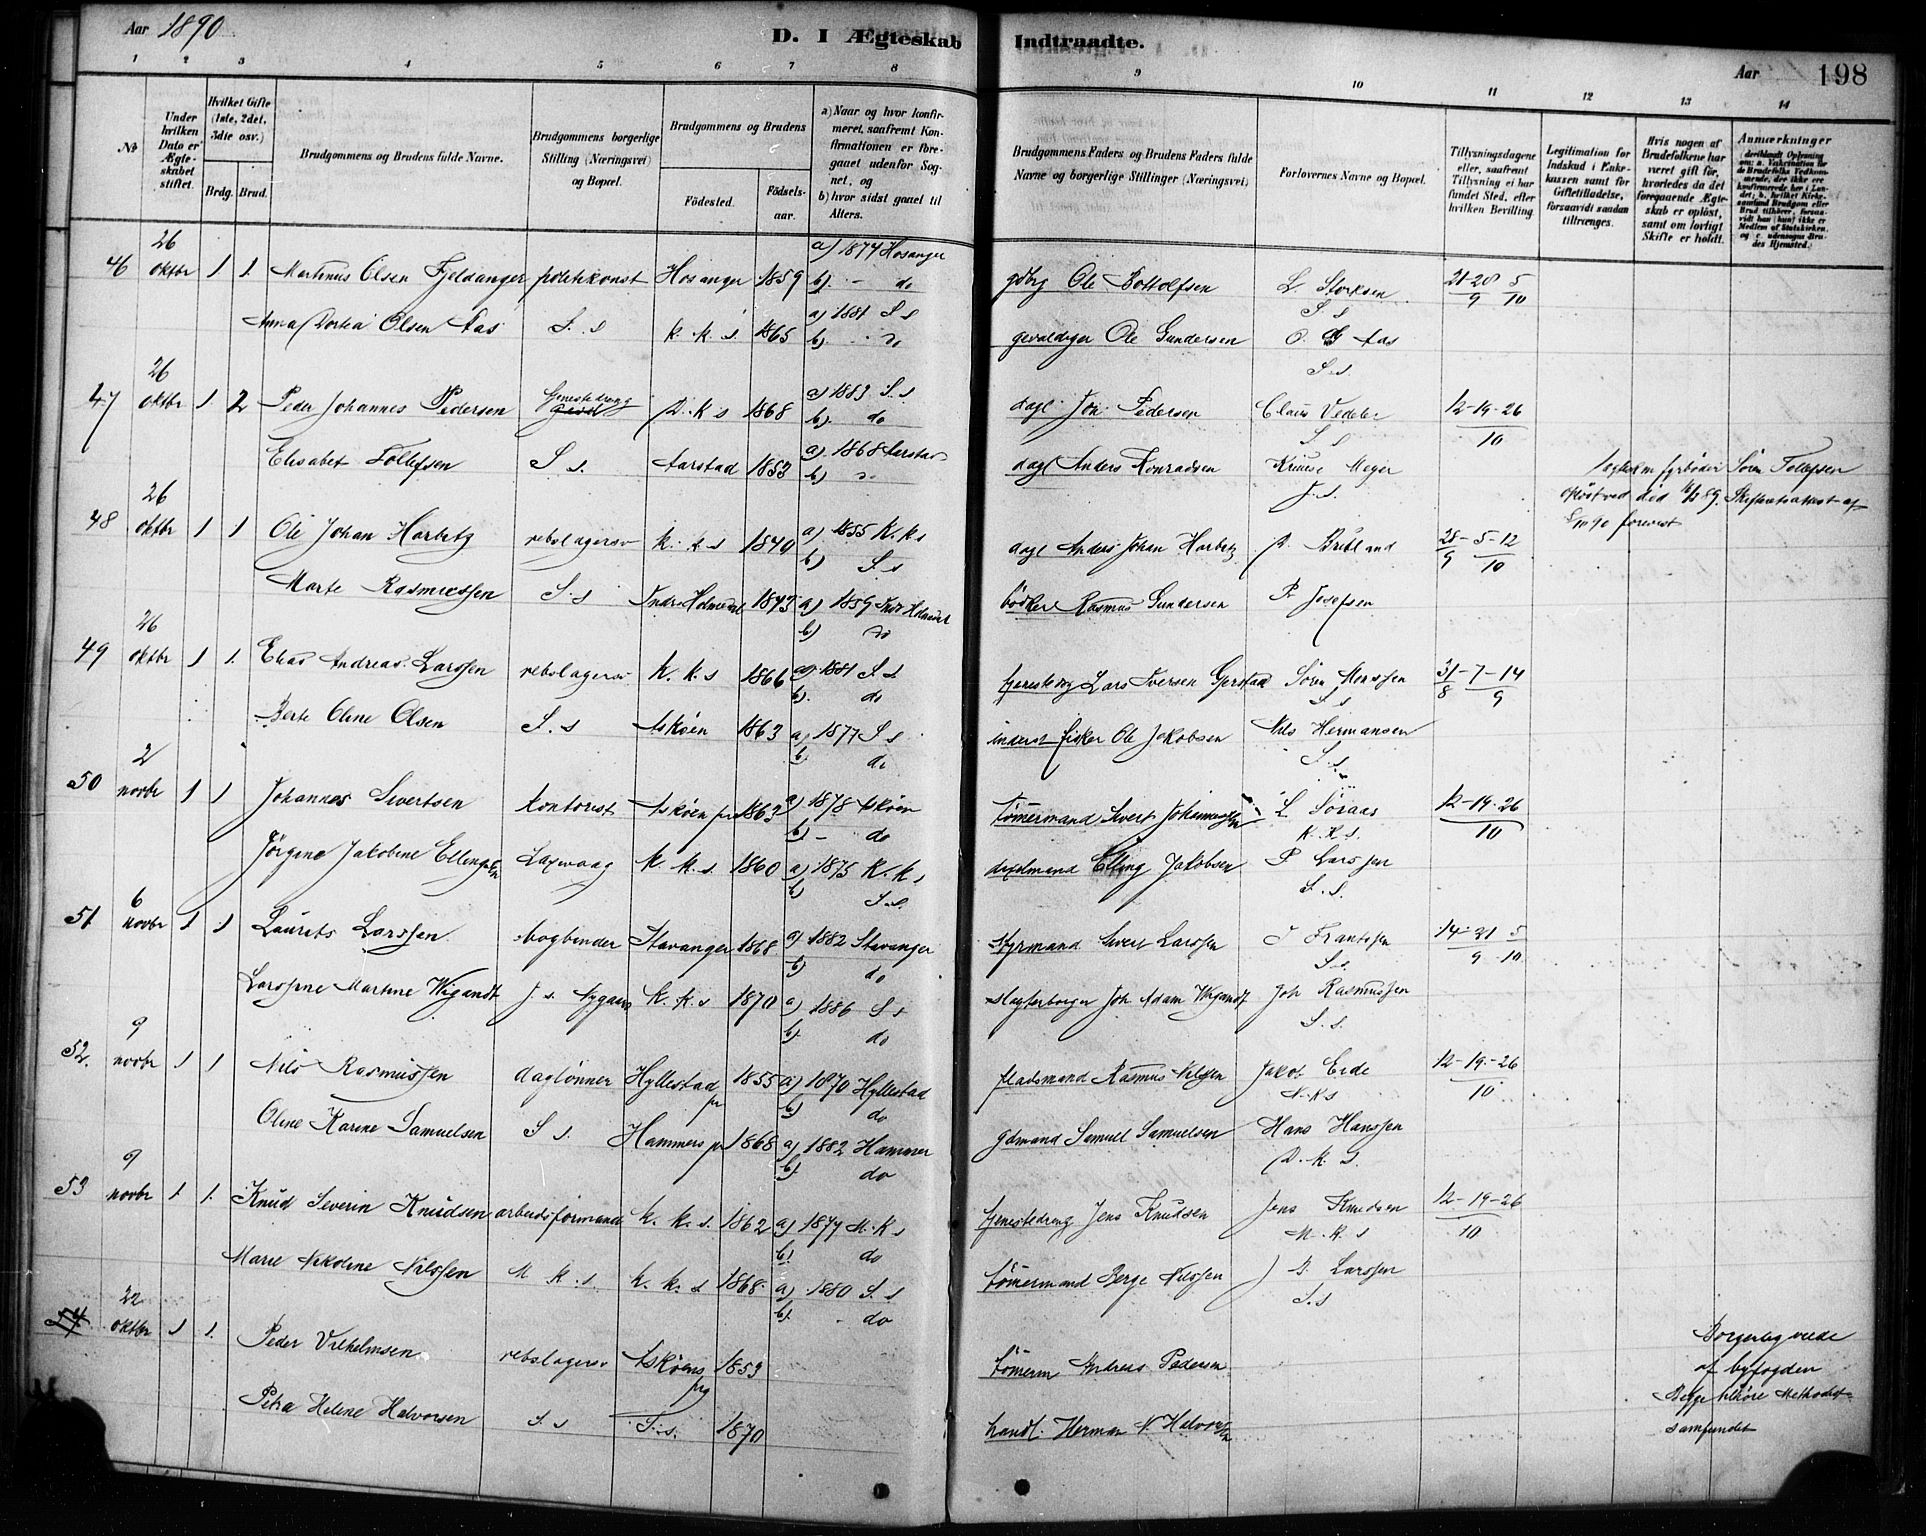 Aar 1890
D. I Ægteskab Indtraadte.
Aar 198
1 2 3 4 5 6 7 8 9 10 11 12 13 14
No
Under hvilken Dato er Ægteskabet stiftet.
Hvilket Gifte (1ste, 2det, 3dte osv.)
Brdg. Brud.
Brudgommens og Brudens fulde Navne.
Brudgommens borgerlige Stilling (Næringsvei) og Bopæl.
Brudgommens og Brudens
Födested. Födselsaar.
a) Naar og hvor konfirmeret, saafremt Konfirmationen er foregaaet udenfor Sognet, og
b) hvor sidst gaaet til Alters.
Brudgommens Faders og Brudens Faders fulde Navne og borgerlige Stillinger (Næringsvei)
Forlovernes Navne og Bopæl.
Tillysningsdagene eller, saafremt Tillysning ei har fundet Sted, efter hvilken Bevilling.
Legitimation for Indskud i Enkekassen samt for Giftetilladelse, forsaavidt saadan tiltrænges.
Hvis nogen af Brudefolkene har været gift før, hvorledes da det foregaaende Ægteskab er oplöst, samt om lovligt Skifte er holdt.
Anmærkninger
46 26 oktbr 1 1. Martinus Olsen Fjeldanger politikonst Hosanger 1859 a) 1874 Hosanger b) - do gdbg Ole Bottolfsen L. Storksen S s 21-28 5 / 9 10
Anna Dortea Olsen Aas S. s k. k. s. 1865 a) 1881 S s b) do gevaldiger Ole Gundersen O. G Aas S.s.
47 26 oktbr 1. 2 Peder Johannes Pedersen Tjenestedreng D. k s 1868 a) 1883 S. s b) do dagl Joh. Pedersen Claus Vedeler S s 12-19-26 / 10
Elisabet Tollefsen S s. Aarstad 1853 a) 1868 Aarstad b) do dagl Anders Konradsen Kruuse Meyer J. s. fyrböder Sören Tollefsen
48 26 oktbr 1 1 Ole Johan Harbitz rebslagersv k. k s 1840 a) 1855 K. k s b) S. s dagl Anders Johan Harbitz D. Bredland 28-5-12 / 9 10
Marte Rasmussen S. s Indr Holmedal 1843 a) 1859 Indr Holmedal b) do bödker Rasmus Gundersen P. Josefsen
49 26 oktbr 1 1. Elias Andreas Larssen rebslagersv k. k. s 1866 a) 1881 S s b). do tjenestedrg Lars Iversen Gjerstad Sören Monssen S s 31-7-14 / 8 9
Berte Oline Olsen S. s Askøen 1863 a) 1877 S s b) do inderst fisker Ole Jakobsen Nils Hermansen S s
50 2 novbr 1 1 Johannes Sivertsen kontorist Askøen prg 1863 a) 1878 Askøen b) - do tömermand Sivert Johannessen L Söraas K. K s. 12-19-26 / 10
Jörgine Jakobine Ellingsen Laxevaag k. k. s. 1860 a) 1875 K. k s b) S. s. Elling Jakobsen P Larssen S. s.
51 6 novbr 1 1 Laurits Larssen bogbinder Stavanger 1868 a) 1882 Stavanger b) do styrmand Sivert Larssen J Frantssen S s 14-21 5 / 9 10
Larssine Martine Wigandt J. s. Nygaard k. k. s 1870 a) 1886 S s b). do slagterborger Joh Adam Wigandt Joh Rasmussen S. s.
52. 9 novbr 1 1 Nils Rasmussen daglønner Hyllestad pr 1855 a) 1870 Hyllestad b) do pladsmand Rasmus Nilssen Jakob Eide N. k s 12-19-26 / 10
Oline Karine Samuelsen S s. Hammers pr 1868 a) 1882 Hammer b). do gdmand Samuel Samuelsen Hans Hanssen D. k s
53 9 novbr 1. 1. Knud Severin Knudsen arbeidsformand k. k. s. 1862 a) 1877 N. k s b). do tjenestedreng Jens Knudsen Jens Knudsen N. k. s 12-19-26 / 10
Marie Nikoline Nilssen N k. s. k. k. s 1868 a) 1880 S. s b). do tömermand Berge Nilssen J B Larssen S. s
54 22 oktbr 1 1. Peder Vilhelmsen rebslagersv Askøens prg 1853 tömerm Andreas Pedersen Borgerlig viede af byfogden
Petra Helene Halvorsen S. s S. s. 1870 handl. Herman N. Halvorsen Begge tilhöre Methodist-samfundet